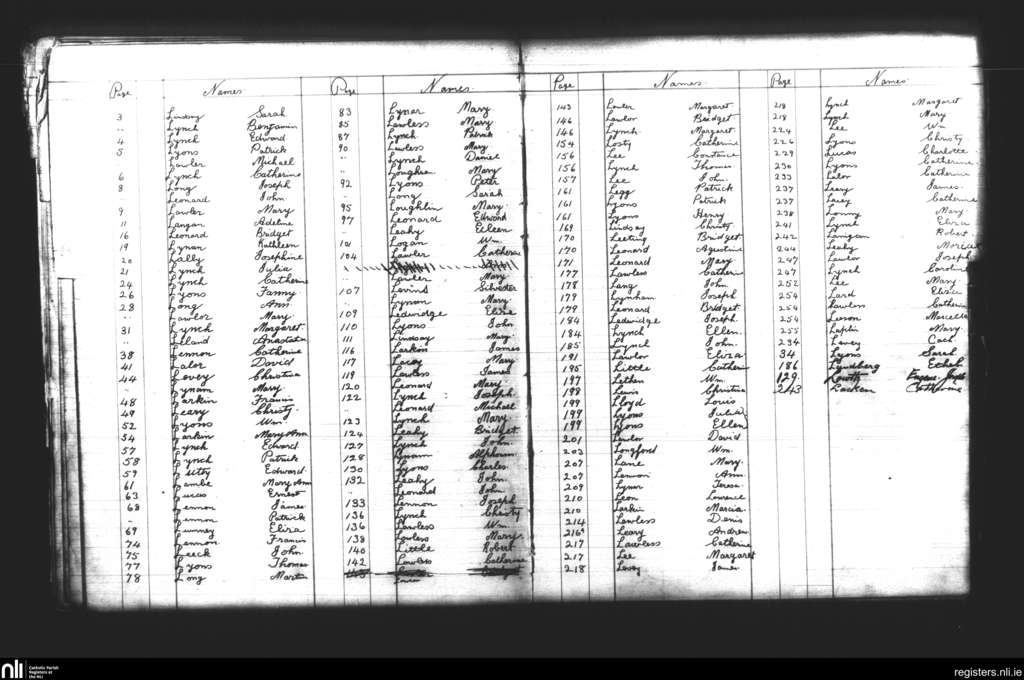 Page Names Page Names. Page Names. Page Names.
3 Lindsay Sarah
" Lynch Benjamin
4 Lynch Edward
5 Lyons Patrick
" Lawler Michael
6 Lynch Catherine
8 Long Joseph
" Leonard John
9 Lawler Mary
11 Langan Adeline
16 Leonard Bridget
19 Lynan Kathleen
20 Lally Josephine
21 Lynch Julia
24 Lynch Catherine
26 Lyons Fanny
28 Long Ann
" Lawlor Mary
31 Lynch Margaret
" Lilland Anastatia
38 Lennon Catherine
41 Lalor David
44 Lovey Christina
" Lynam Mary
48 Larkin Francis
49 Leary Christy
52 Lyons Wm
54 Larkin Mary Ann
57 Lynch Edward
58 Lynch Patrick
59 Edward
61 Lambe Mary Ann
63 Lucas Ernest
68 Lennon James
" Lennon Patrick
69 Lunney Eliza
74 Lennon Francis
75 Leeck John
77 Lyons Thomas
78 Long Martin
83 Lynar Mary
85 Lawless Mary
87 Lynch Patrick
90 Lawless Mary
" Lynch Daniel
" Loughran Mary
92 Lyons Peter
" Long Sarah
95 Loughlin Mary
97 Leonard Edward
" Leahy Eileen
101 Logan Wm
104 Lawler Catherine
" Lawler Mary
107 Levind Silvester
" Lynon Mary
109 Ledwidge Eliza
110 Lyons John
111 Lindsay Mary
116 Larkin James
117 Lacey Mary
119 Lawless James
120 Leonard Mary
122 Lynch Joseph
" Leonard Michael
123 Lynch Mary
124 Leahy Bridget
127 Lynch John
128 Lynam
130 Lyons Charles
132 Leahy John
" Leonard John
133 Lennon Joseph
136 Lynch Christy
136 Lawless Wm
138 Lawless Mary
140 Little Robert
142 Lawless Catherine
143 Lawler Margaret
146 Lawlor Bridget
146 Lynch Margaret
154 Losty Catherine
156 Lee Constance
156 Lynch Thomas
157 Lee John
161 Legg Patrick
161 Lyons Patrick
161 Lyons Henry
169 Lindsay Christy
170 Leeting Bridget
170 Leonard Agustine
171 Leonard Mary
177 Lawless Catherine
178 Lang John
179 Lynham Joseph
179 Leonard Bridget
184 Ledwidge Joseph
184 Lynch Ellen
185 Lynch John
191 Lawlor Eliza
195 Little Catherin
197 Lethen Wm
198 Lewis Christina
199 Lloyd Louis
199 Lyons Julia
199 Lyons Ellen
201 Lawlor David
203 Longford Wm
207 Lane Mary
207 Lemon Ann
209 Lynar Teresa
210 Leon Lawrence
210 Larkin Marcia
214 Lawless Denis
216 Leary Andrew
217 Lawless Catherine
217 Lee Margaret
218 James
218 Lynch Margaret
218 Lynch Mary
224 Lee Wm
226 Lyons Christy
229 Lucas Charlotte
230 Lyons Catherine
233 Lalor Catherine
237 Leary James
237 Lacey Catherine
238 Mary
241 Lynch Eliza
242 Lanigan Robert
244 Leahy
247 Lawlor Joseph
247 Lynch Caroline
252 Lee Mary
254 Lard
254 Lawless Catherine
254 Leeson Marcella
255 Laplin Mary
234 Lavey
34 Lyons Sarah
186 Lyndberg Ethel
129
243 Lacken Catherine
nli
Catholic Parish
Registers at
the NLI
registers.nli.ie